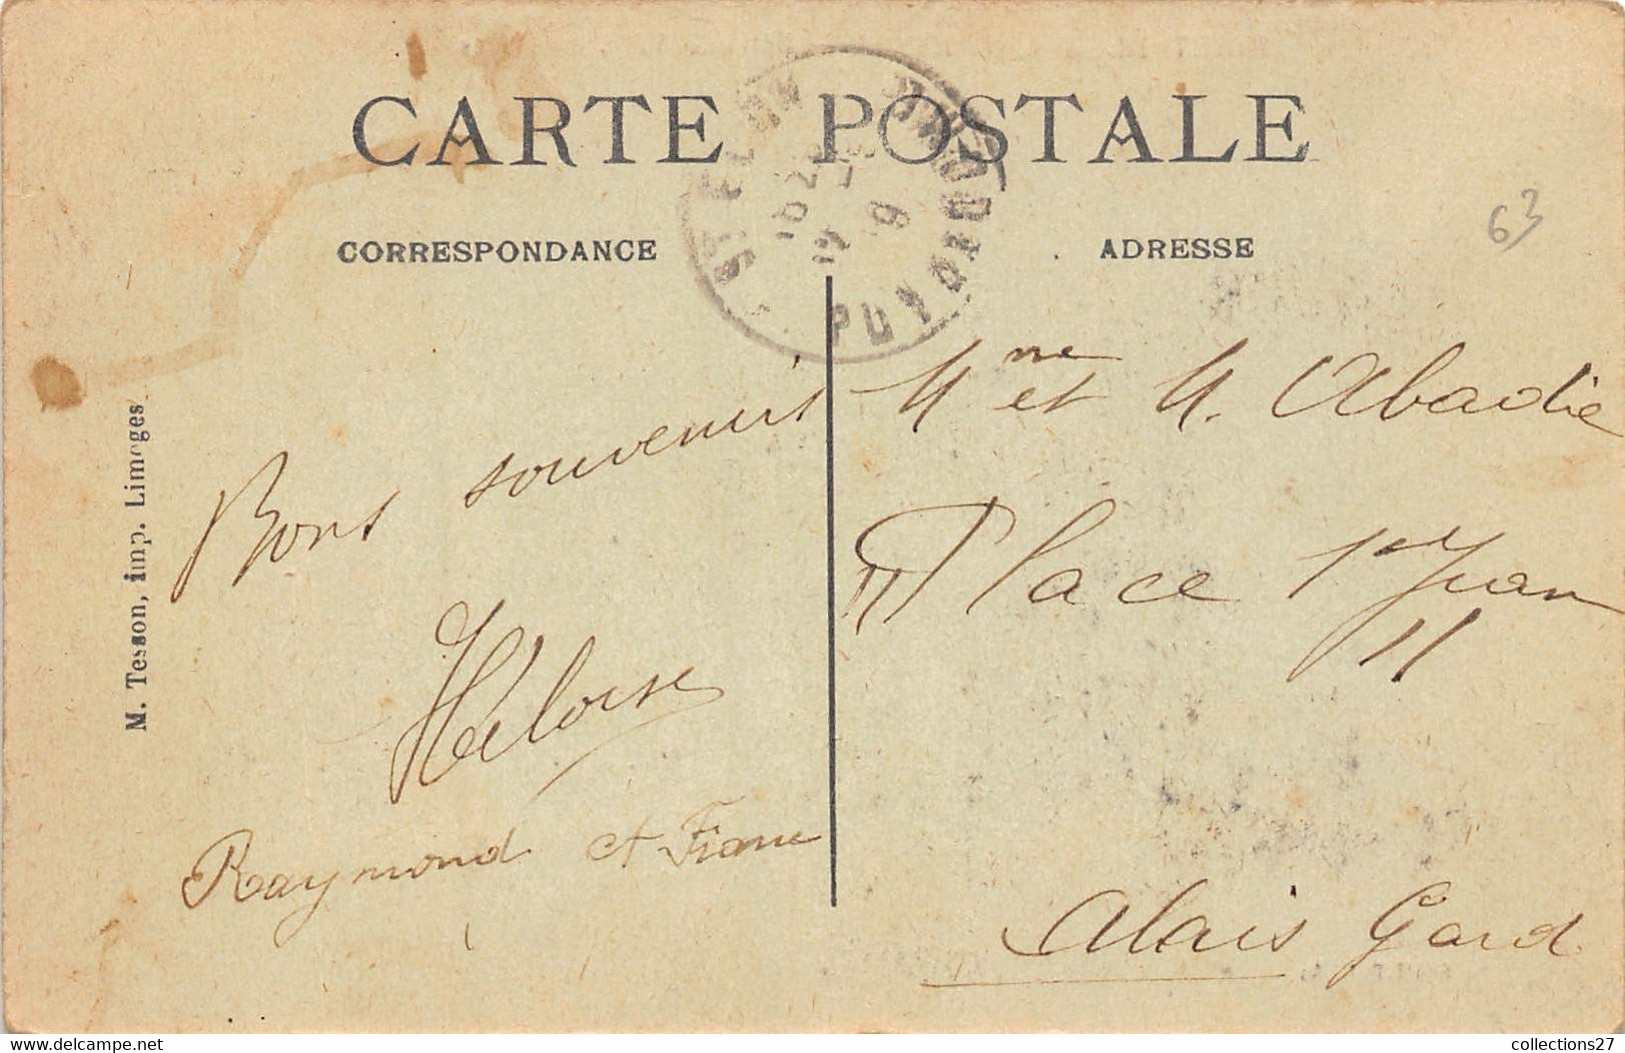 CARTE POSTALE
CORRESPONDANCE
ADRESSE
63
PUY DE DOME
M. Tesson, imp. Limoges
Bons souvenirs
Héloïse
Raymond et
Mme et M. Abadie
Place St Jean
11
Alais Gard
collections27